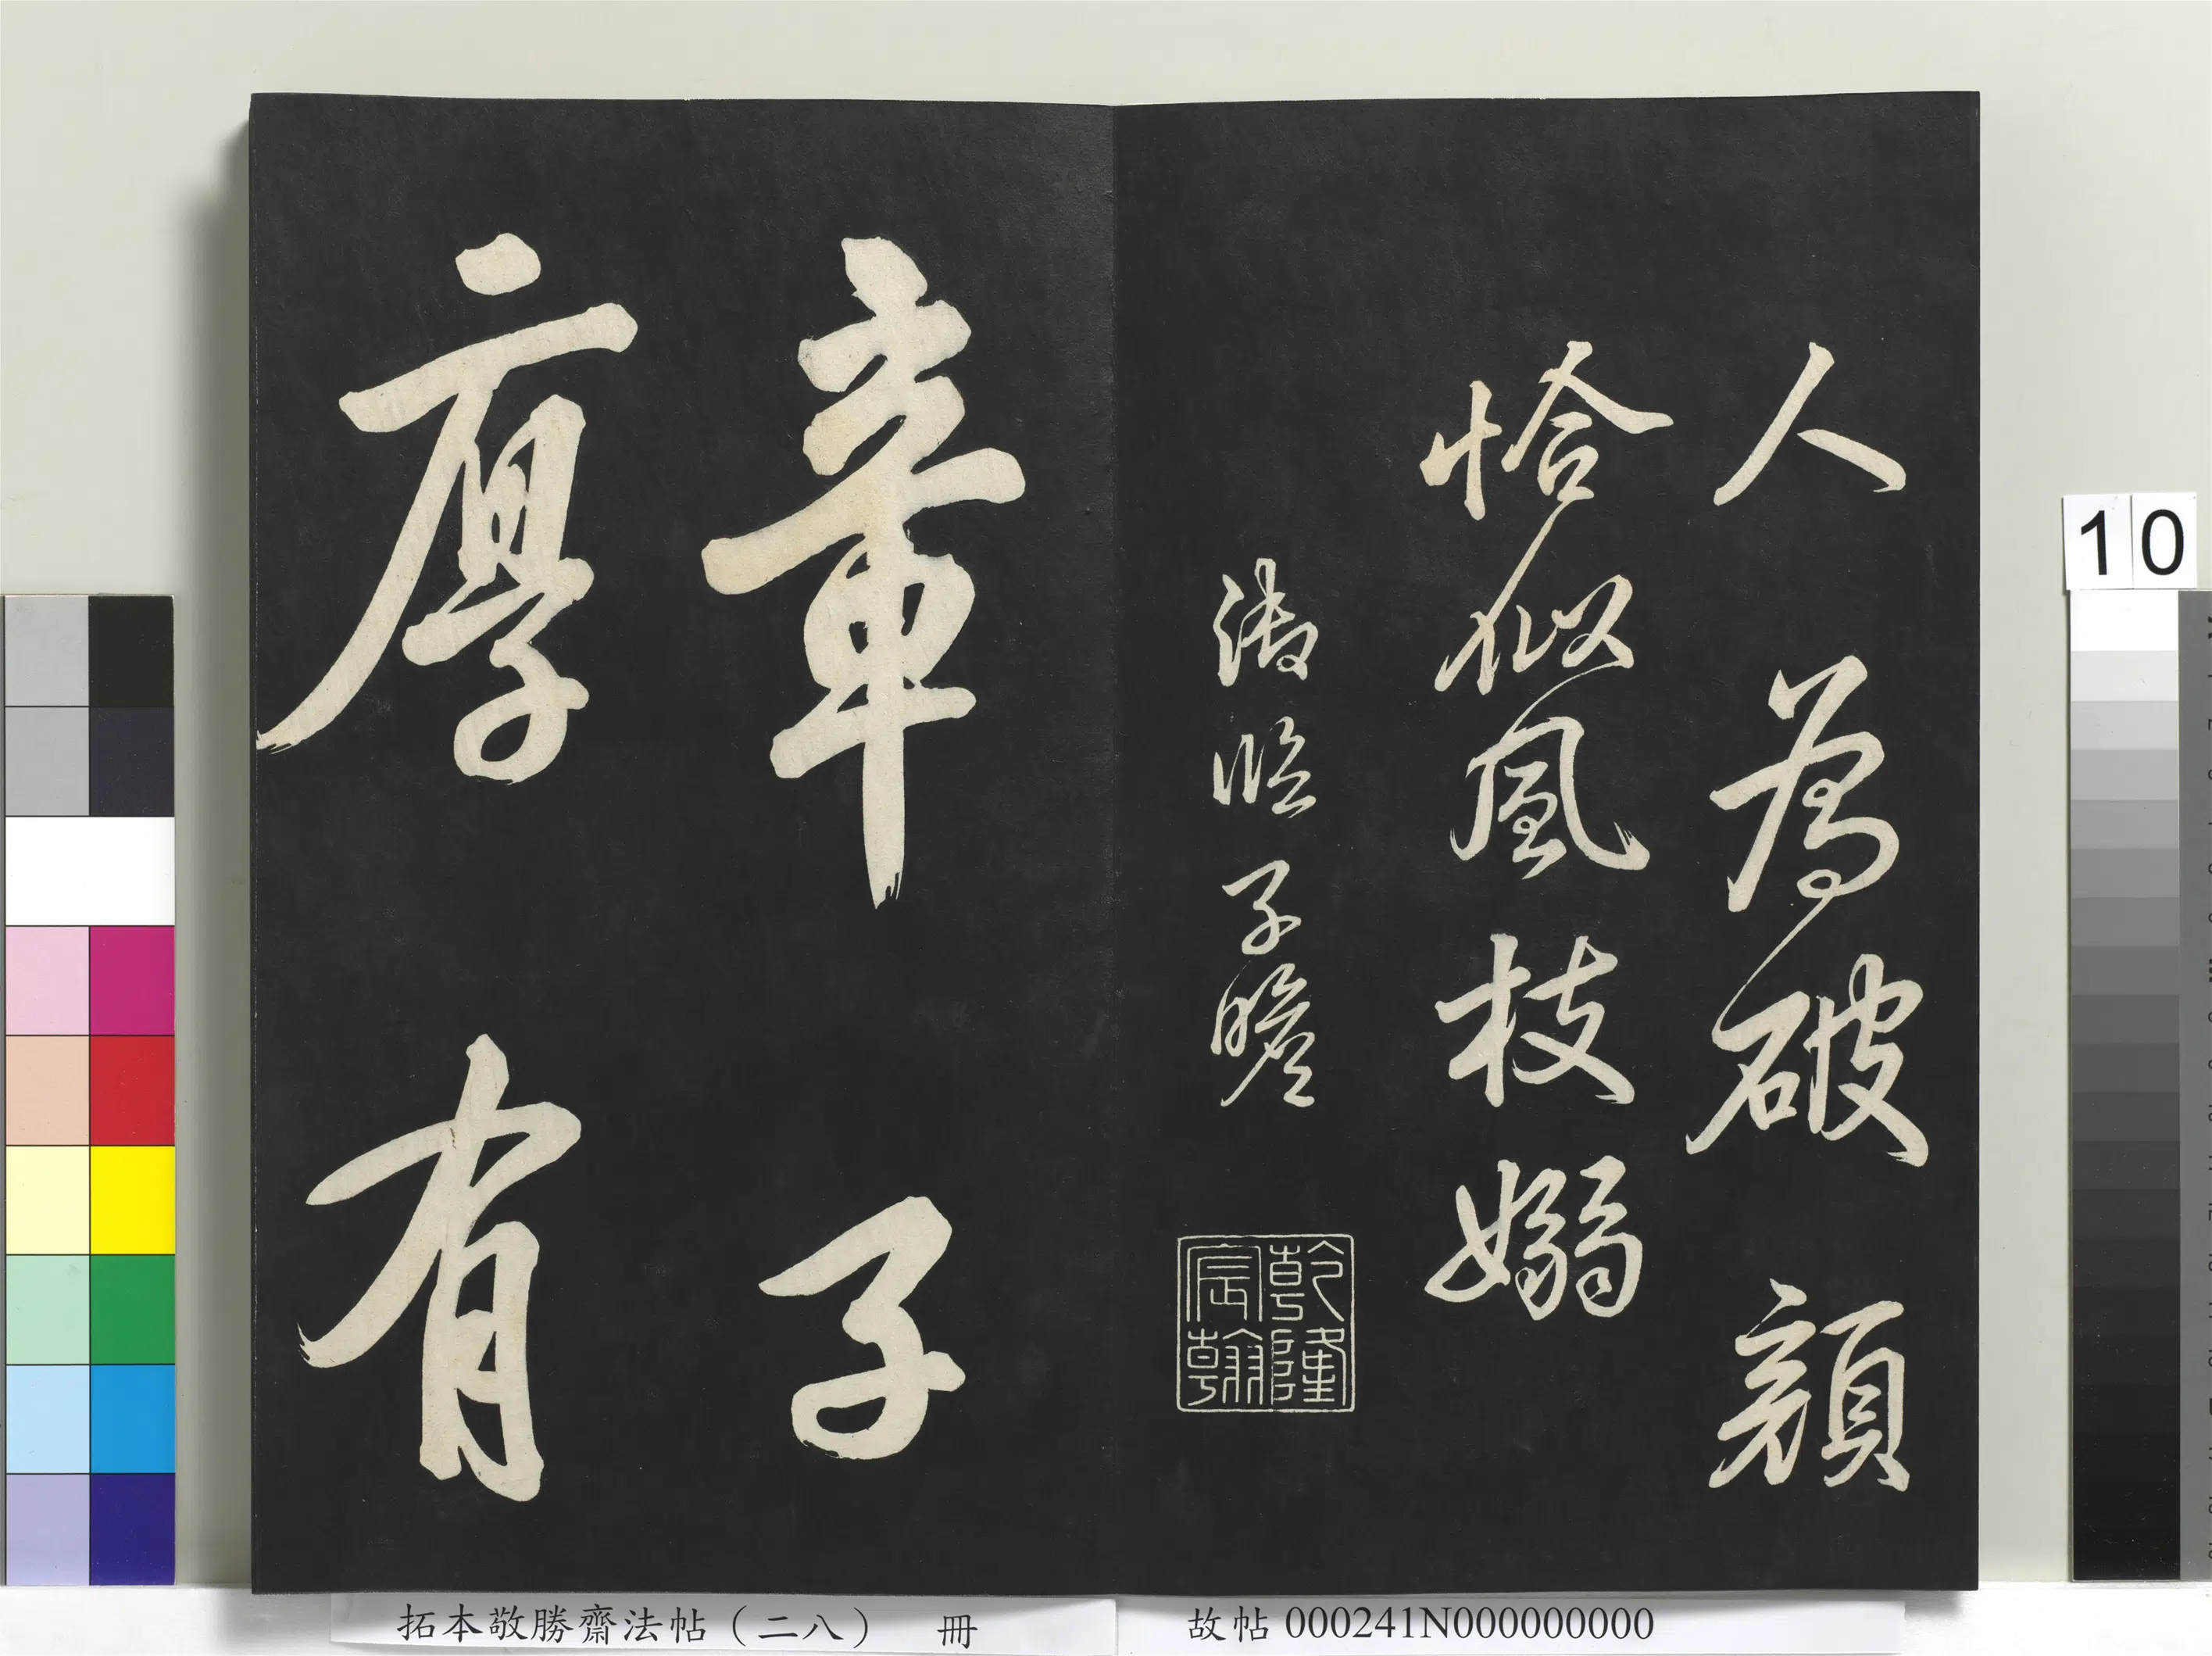 人為破顏
恰似風枝嫋
御臨子瞻
乾隆
宸翰
章子
厚有
10
拓本敬勝齋法帖（二八） 冊
故帖 000241N000000000